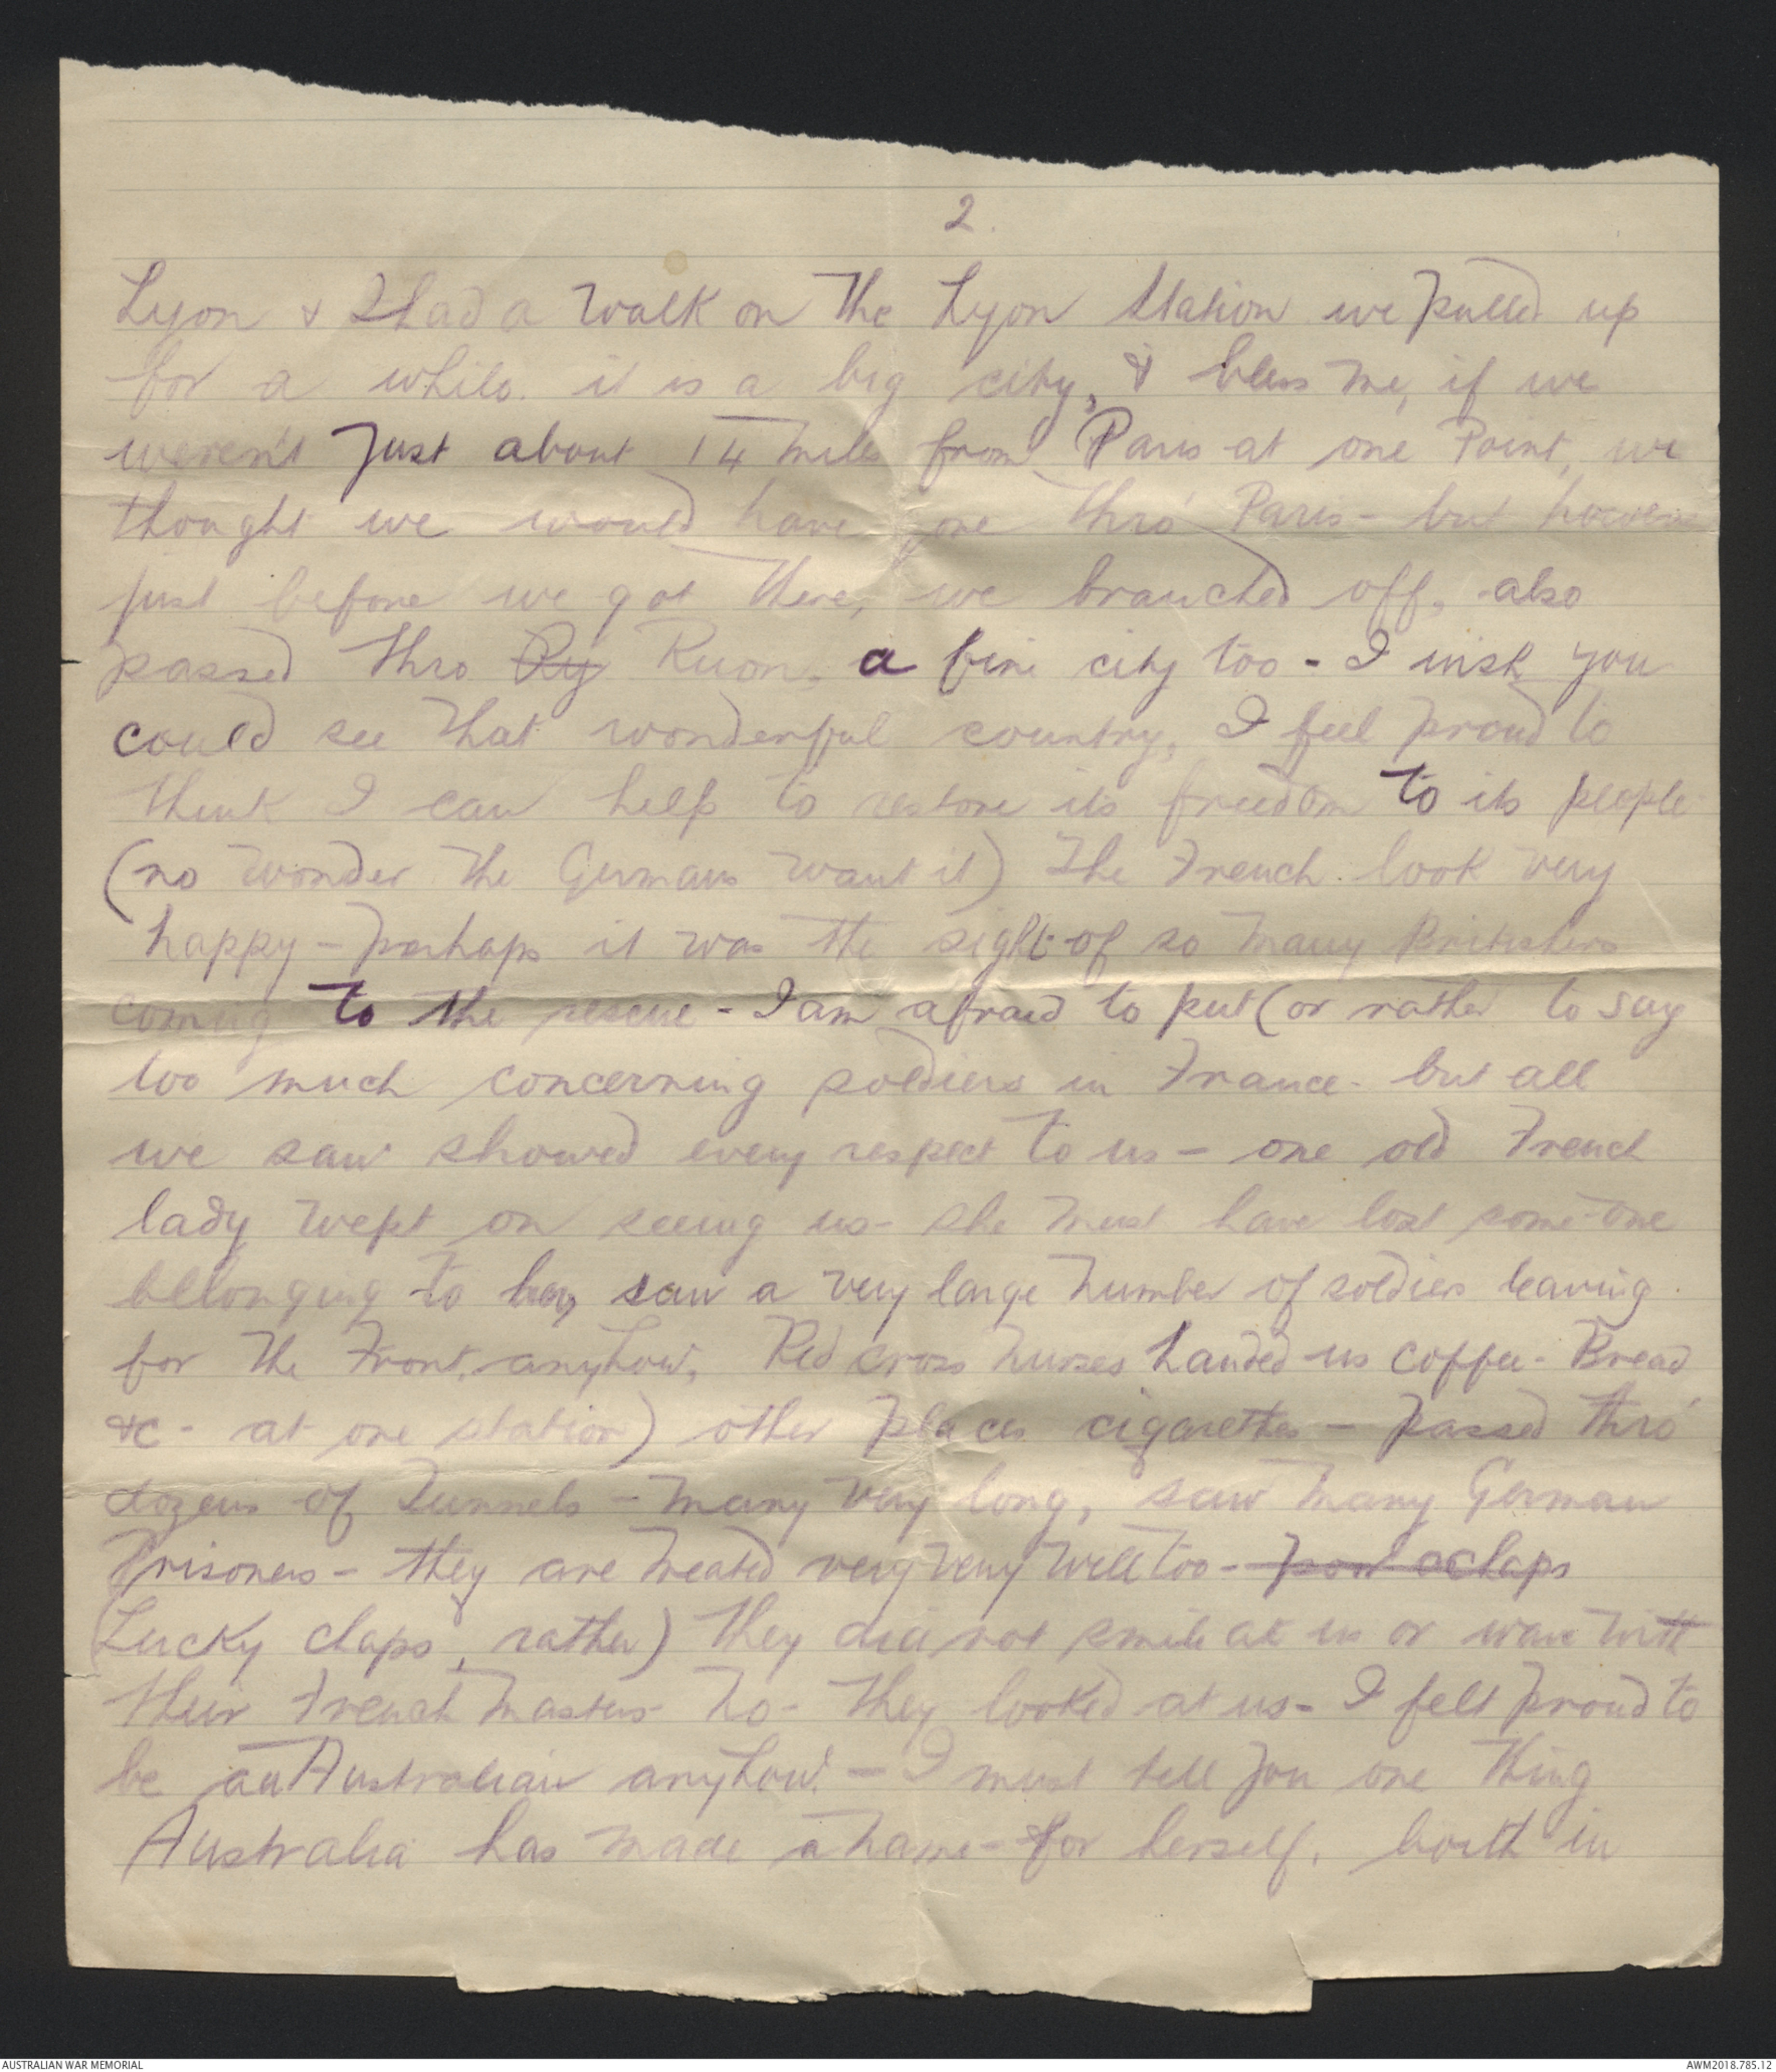 2.
Lyon & I had a walk on the Lyon Station we pulled up
for a while. it is a big city, & bless me, if we
weren't just about 14 miles from Paris at one Point, we
thought we would have gone thro' Paris - but however
just before we got there, we branched off, also
passed thro Ry Ruon, a fine city too - I wish you
could see that wonderful country, I feel proud to
think I can help to restore its freedom to its people
(no wonder the Germans want it) The French look very
happy - perhaps it was the sight of so many Britishers
coming to the rescue - I am afraid to put (or rather to say
too much concerning soldiers in France - but all
we saw showed every respect to us - one old French
lady wept on seeing us - she must have lost some-one
belonging to her, saw a very large number of soldiers leaving
for the Front, anyhow, Red cross nurses handed us coffee - Bread
&c - at one station) other places cigarettes - passed thro'
dozens of Tunnels - many very long, saw many German
Prisoners - they are treated very very well too - poor chaps
(Lucky chaps, rather) they did not smile at us or wave with
their French masters - No - they looked at us - I felt proud to
be an Australian anyhow! - I must tell you one thing
Australia has made a name - for herself, both in
AUSTRALIAN WAR MEMORIAL
AWM2018.785.12